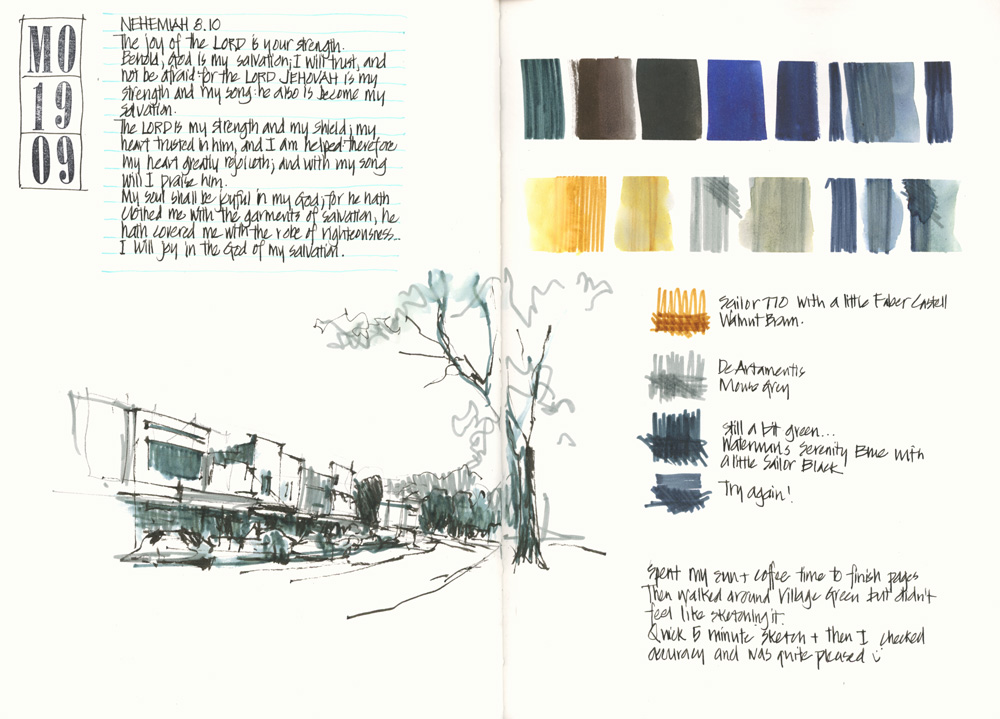 MO
19
09
NEHEMIAH 8.10
The joy of the LORD is your strength.
Behold, God is my salvation; I will trust, and
not be afraid for the LORD JEHOVAH is my
strength and my song: he also is become my
salvation.
The LORD is my strength and my shield; my
heart trusted in him, and I am helped: therefore
my heart greatly rejoiceth; and with my song
will I praise him.
My soul shall be joyful in my God; for he hath
clothed me with the garments of salvation, he
hath covered me with the robe of righteousness...
I will joy in the God of my salvation.
Sailor 770 with a little Faber Castell
Walnut Brown.
De Artamentis
Mouse Grey
still a bit green...
Waterman's Serenity Blue with
a little Sailor Black
Try again!
Spent my sun + coffee time to finish pages
Then walked around Village Green but didn't
feel like sketching it.
Quick 5 minute sketch + then I checked
accuracy and was quite pleased